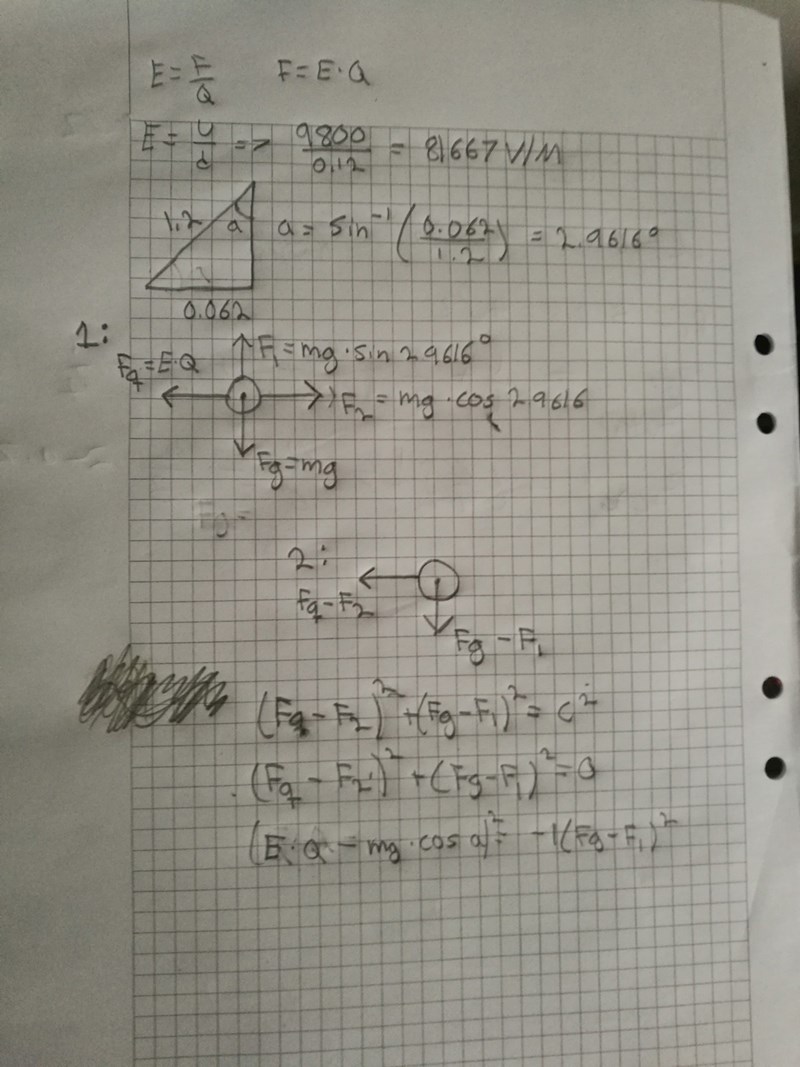 E = F/Q F = E·Q
E = U/d => 9800/0.12 = 81667 V/M
1.2 a a = sin⁻¹(0.062/1.2) = 2.9616°
0.062
1:
Fq = E·Q F₁ = mg·sin 2.9616°
F₂ = mg·cos 2.9616
Fg = mg
2:
Fq - F₂
Fg - F₁
(Fq - F₂)² + (Fg - F₁)² = c²
(Fq - F₂)² + (Fg - F₁)² = 0
(E·Q - mg·cos a)² = -1(Fg - F₁)²